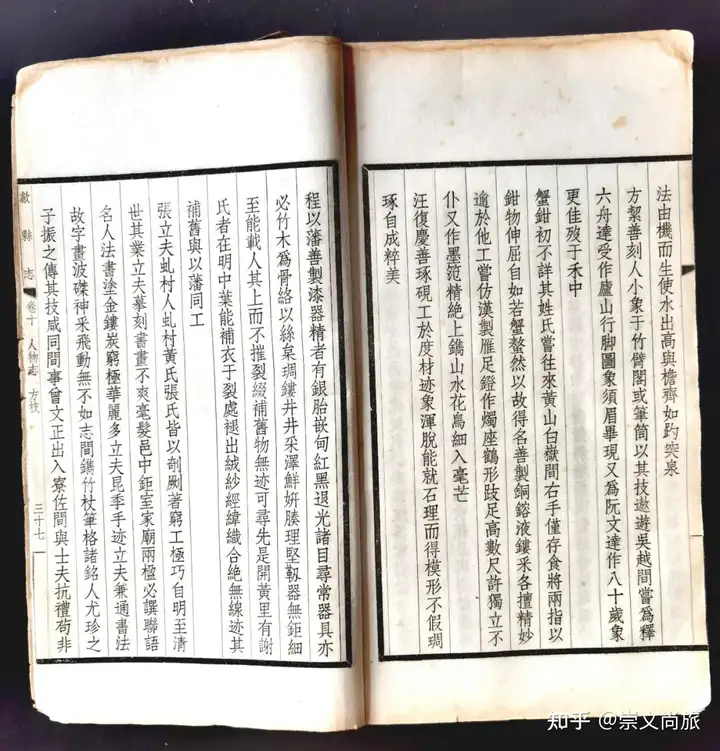 法由機而生使水出高與檐齊如趵突泉
方絜善刻人小象于竹臂閣或筆筒以其技遨遊吳越間嘗爲釋
六舟達受作廬山行脚圖象須眉畢現又爲阮文達作八十歲象
更佳歿于禾中
蟹鉗初不詳其姓氏嘗往來黃山白嶽間右手僅存食將兩指以
鉗物伸屈自如若蟹螯然以故得名善製銅鎔液鏤釆各擅精妙
逾於他工嘗仿漢製雁足鐙作燭座鶴形跂足高數尺許獨立不
仆又作墨笵精絶上鐫山水花鳥細入毫芒
汪復慶善琢硯工於度材迹象渾脫能就石理而得模形不假琱
琢自成粹美
程以藩善製漆器精者有銀胎嵌甸紅黑退光諸目尋常器具亦
必竹木爲骨絡以絲枲琱鏤井井采澤鮮妍腠理堅靱器無鉅細
至能載人其上而不摧裂綴補舊物無迹可尋先是開黃里有謝
氏者在明中葉能補衣于裂處褪出絨紗經緯織合絶無線迹其
補舊與以藩同工
張立夫虬村人虬村黃氏張氏皆以剞劂著窮工極巧自明至清
世其業立夫摹刻書畫不爽毫髮邑中鉅室家廟兩楹必譔聯語
名人法書塗金鏤炭窮極華麗多立夫昆季手迹立夫兼通書法
故字畫波磔神釆飛動無不如志間鐫竹杖筆格諸銘人尤珍之
子振之傳其技咸同間事曾文正出入寮佐間與士夫抗禮茍非
歙縣志 卷十 人物志 方技 三十七
知乎 @崇文尚旅